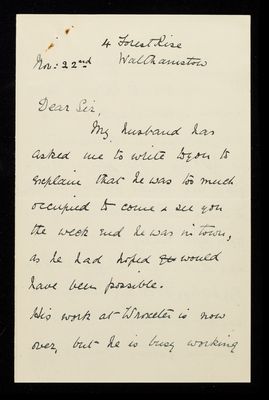 4 Forest Rise
Nov: 22nd Walthamstow
Dear Sir,
My husband has
asked me to write to you to
explain that he was too much
occupied to come & see you
the week end he was in town,
as he had hoped would
have been possible.
His work at Wroxeter is now
over, but he is busy working